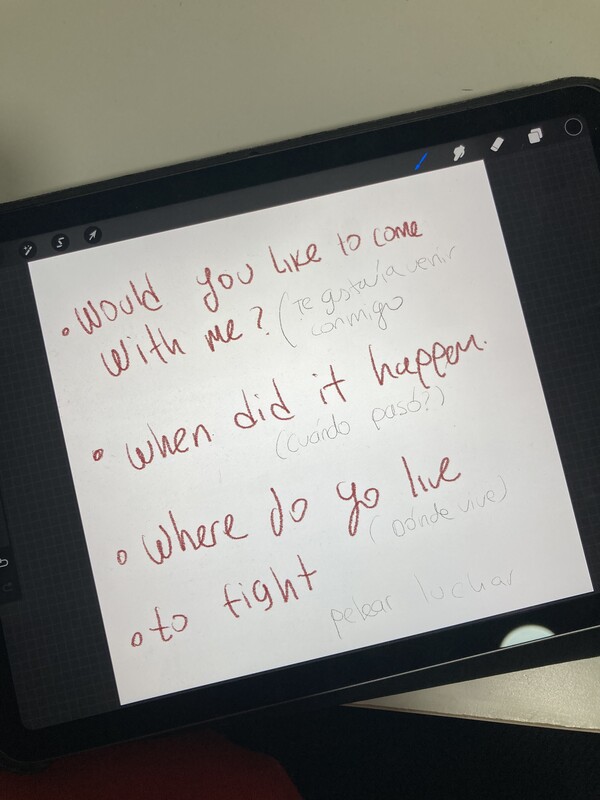 • Would you like to come
with me? (Te gustaría venir
conmigo
• when did it happen.
(cuándo pasó?)
• Where do go live
(Dónde vive)
• to fight
pelear luchar